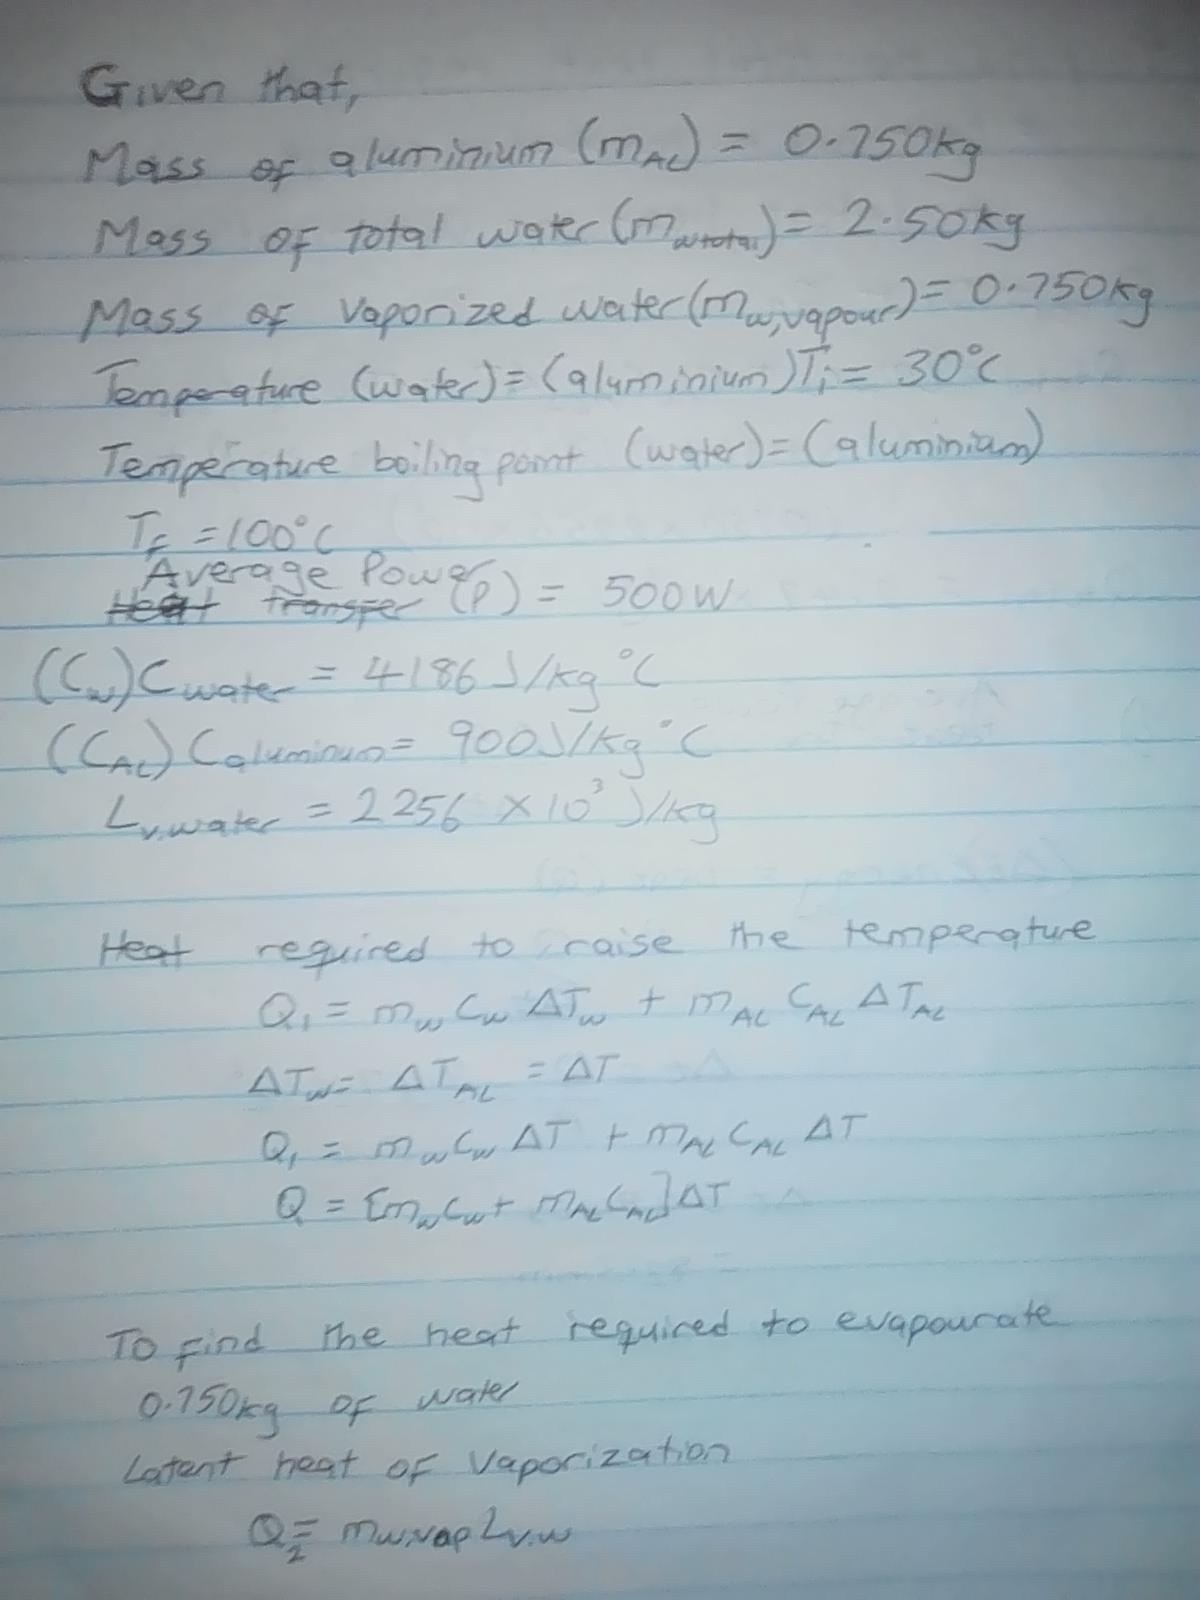 Given that,
Mass of aluminium (m_AL) = 0.750kg
Mass of total water (m_w total) = 2.50kg
Mass of vaporized water (m_w,vapour) = 0.750kg
Temperature (water) = (aluminium) T_i = 30°C
Temperature boiling point (water) = (aluminium)
T_F = 100°C
Average Power
Heat transfer (P) = 500W
(C_w) C_water = 4186 J/kg °C
(C_AL) C_aluminum = 900 J/kg °C
L_v.water = 2256 × 10³ J/kg
Heat required to raise the temperature
Q_1 = m_w C_w ΔT_w + m_AL C_AL ΔT_AL
ΔT_w = ΔT_AL = ΔT
Q_1 = m_w C_w ΔT + m_AL C_AL ΔT
Q = [m_w C_w + m_AL C_AL] ΔT
To find the heat required to evapourate
0.750kg of water
Latent heat of vaporization
Q_2 = m_w.vap L_v.w